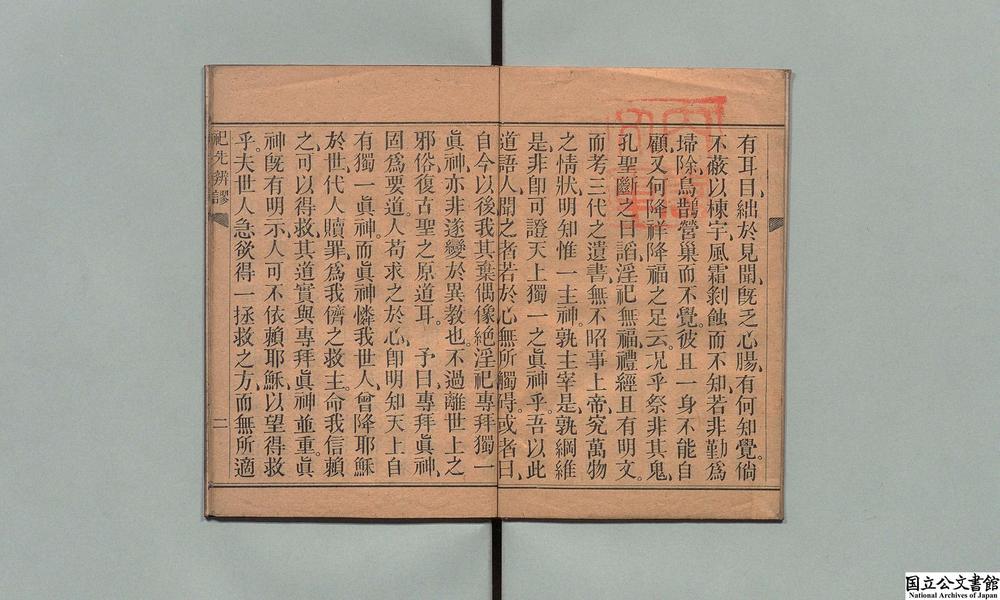 有耳目、絀於見聞、旣乏心腸、有何知覺。倘
不蔽以棟宇、風霜剝蝕而不知、若非勤爲
埽除、鳥鵲營巢而不覺。彼且一身不能自
顧、又何降祥降福之足云。况乎祭非其鬼、
孔聖斷之曰諂、淫祀無福、禮經且有明文。
而考三代之遺書、無不昭事上帝、究萬物
之情狀、明知惟一主神。孰主宰是、孰綱維
是、非卽可證天上獨一之眞神乎。吾以此
道語人、聞之者若於心無所觸碍。或者曰、
自今以後、我其棄偶像、絕淫祀、專拜獨一
眞神、亦非遂變於異教也。不過離世上之
邪俗、復古聖之原道耳。予曰、專拜眞神、
固爲要道、人苟求之於心、卽明知天上自
有獨一眞神。而眞神憐我世人、曾降耶穌
於世、代人贖罪、爲我儕之救主。命我信賴
之、可以得救、其道實與專拜眞神並重。眞
神旣有明示、人可不依賴耶穌、以望得救
乎。夫世人急欲得一拯救之方、而無所適
祀先辨謬
二
国立公文書館
National Archives of Japan